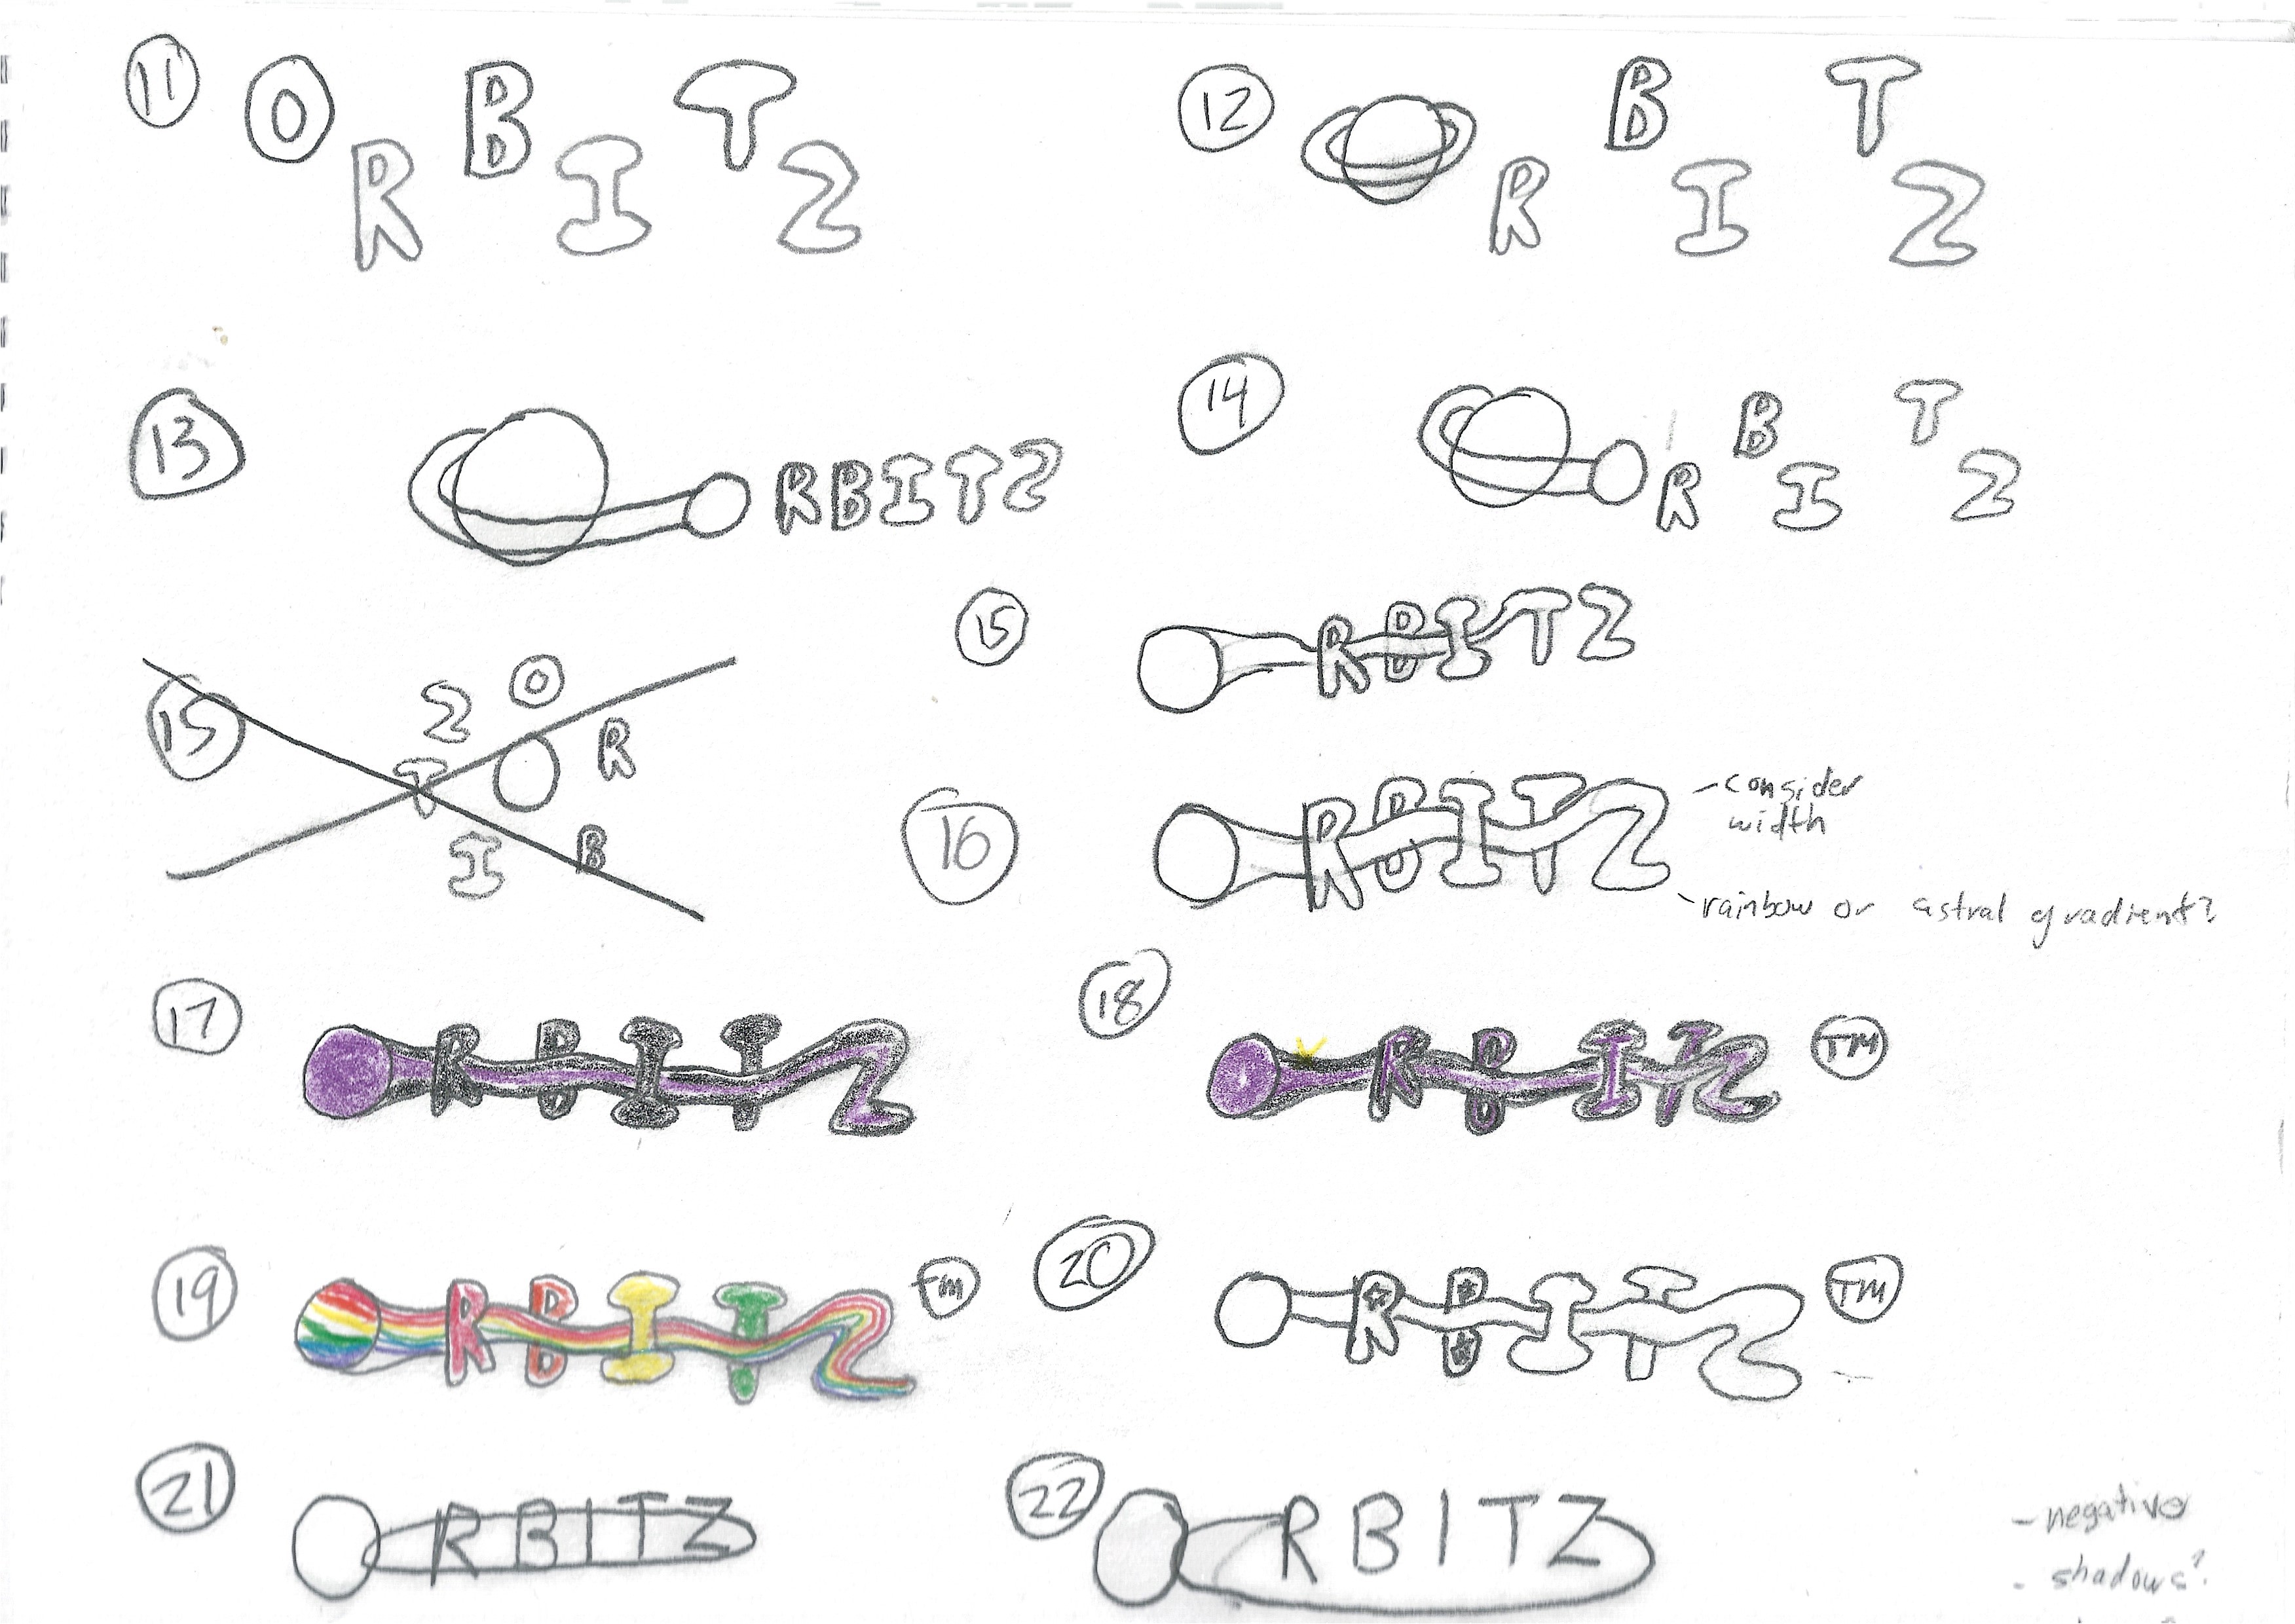 11
O B T
R I Z
12
B T
R I Z
13
RBITZ
14
B T
R I Z
15
Z O
T R
I B
15
RBITZ
16
RBITZ
-consider
width
rainbow or astral gradient?
17
RBITZ
18
RBITZ
TM
19
RBITZ
TM
20
RBITZ
TM
21
RBITZ
22
RBITZ
- negative
- shadows?